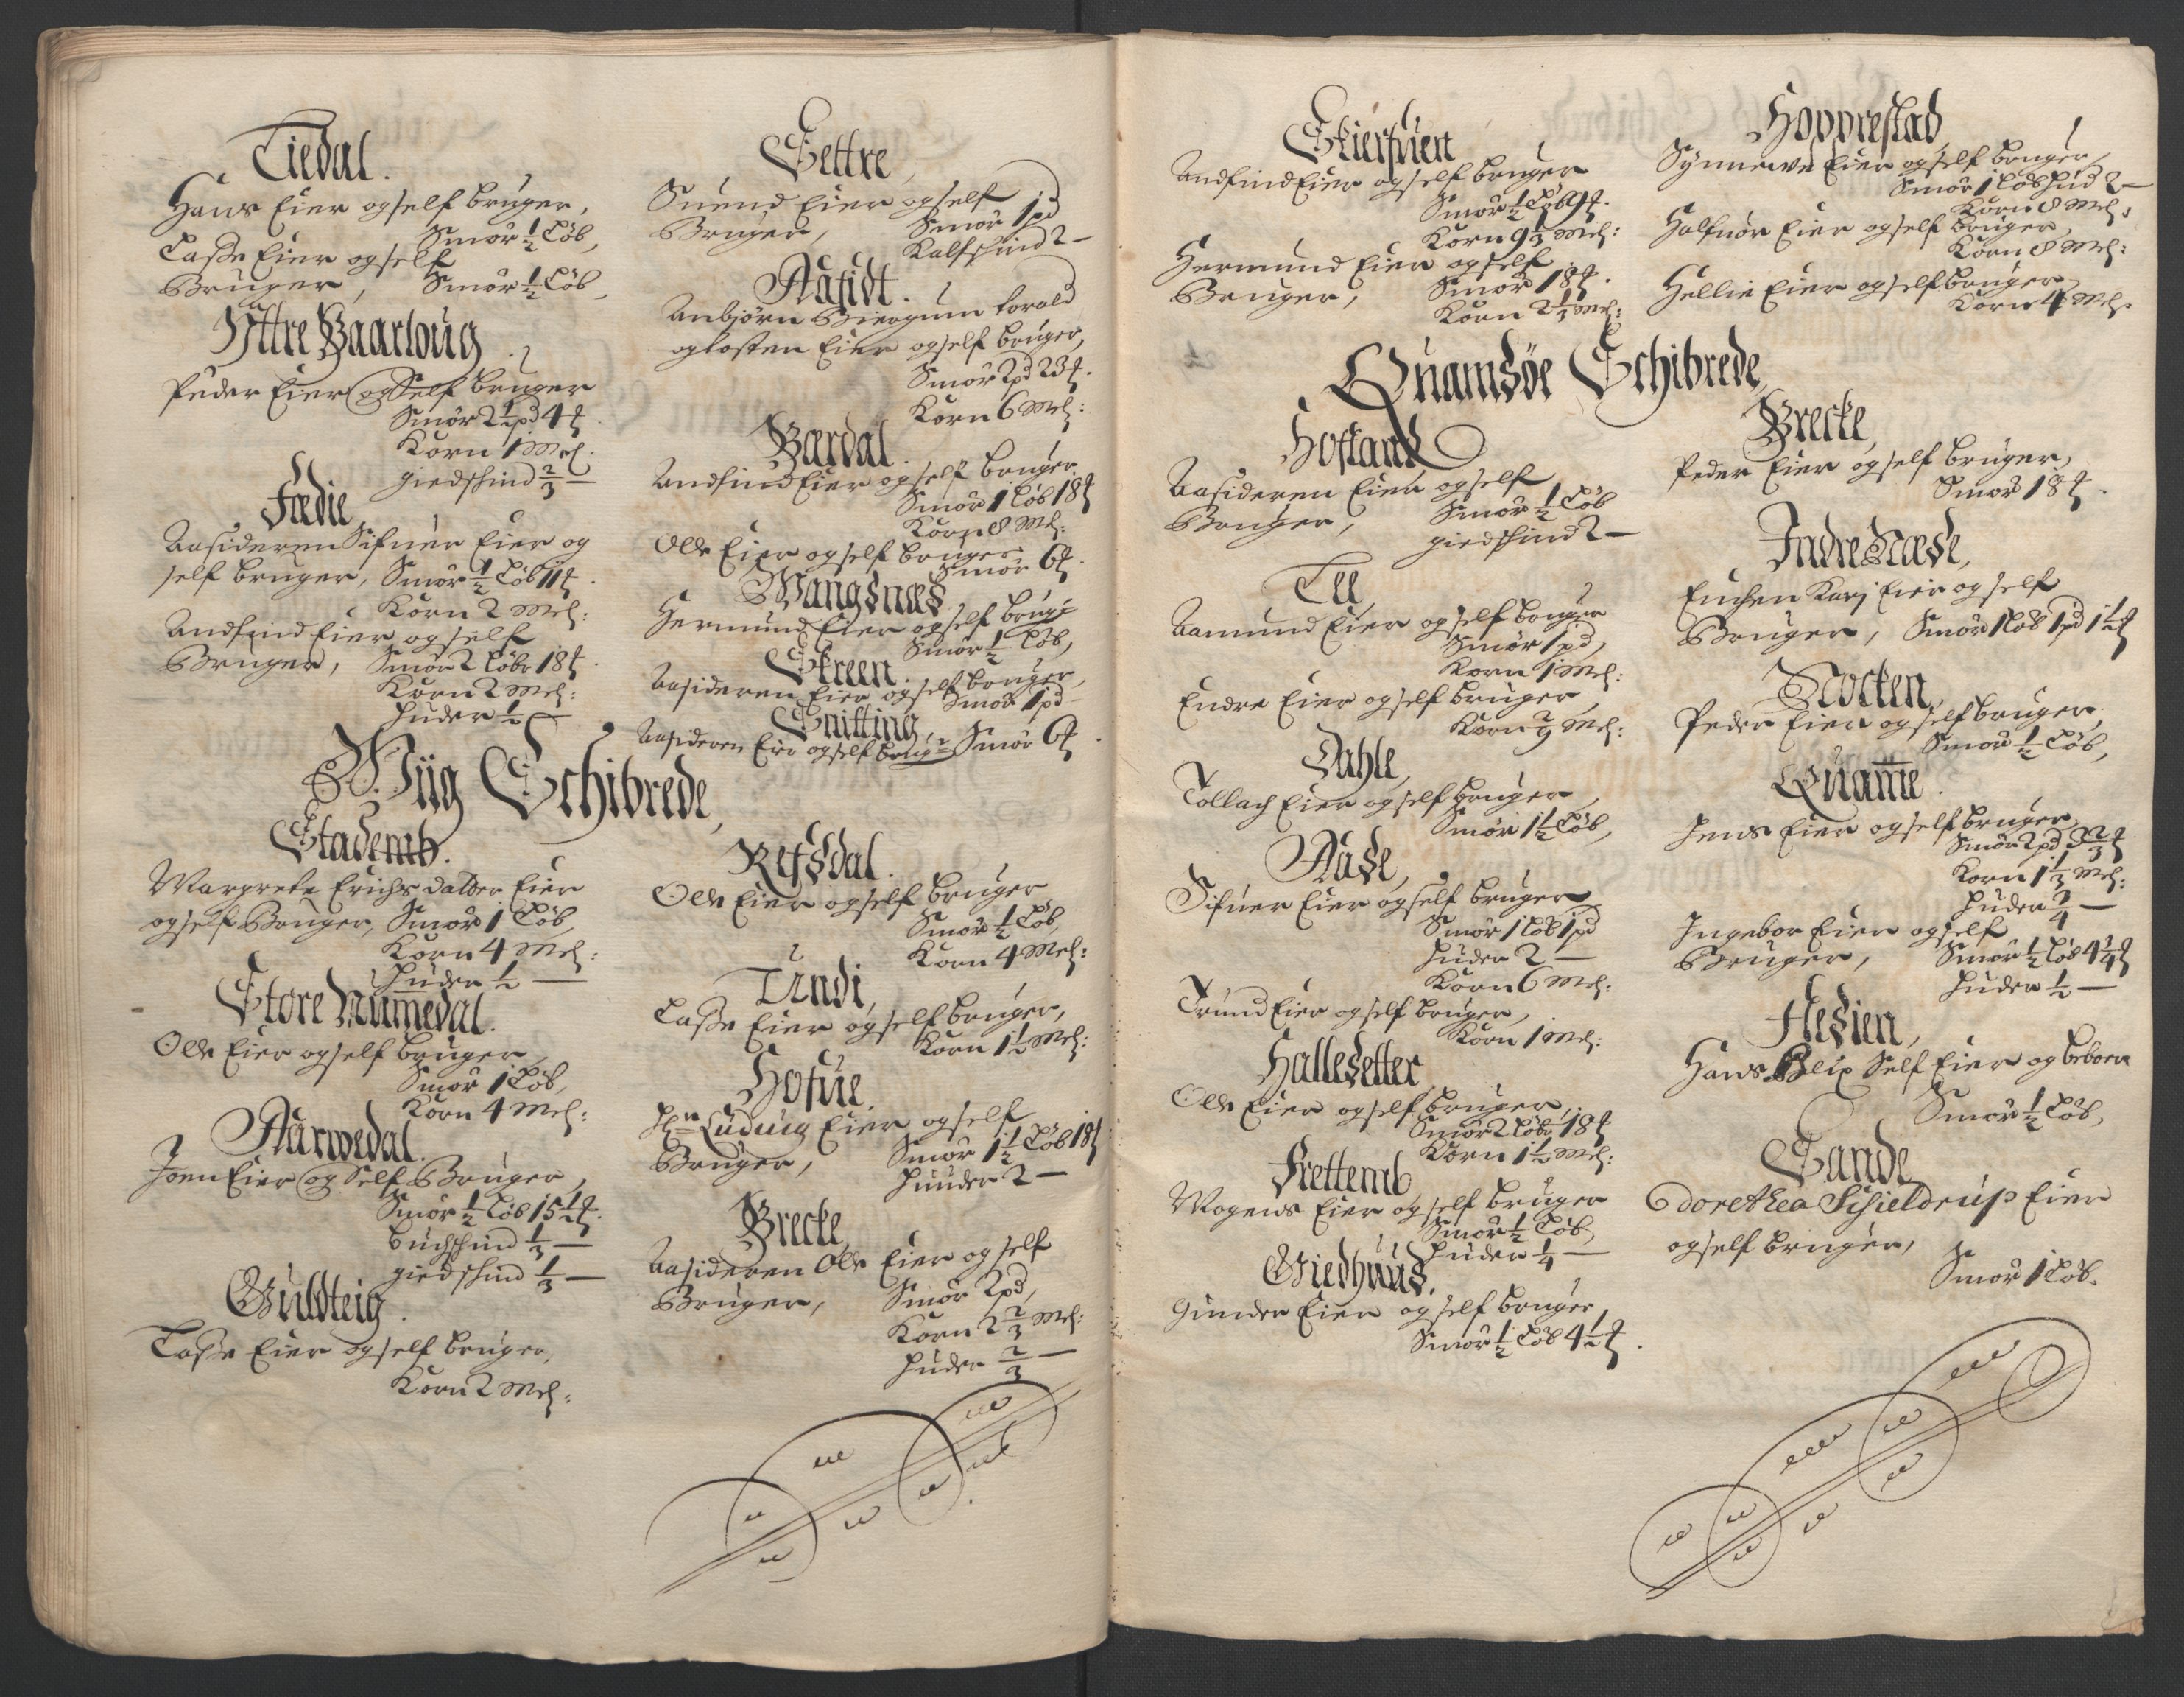 Tiedal.
Hans Eier og self bruger,
Smör ½ Löb,
Lasse Eier og self
Bruger, Smör ½ Löb,
Ÿttre Baarloug
Peder Eier og Self bruger
Smör 2½ pd 4 ℔
Korn 1 Mel.
giedschind ⅔ —
Fedie
Aasideren Sifuer Eier og
self bruger, Smör ½ Löb 11 ℔.
Korn 2 Mel:
Andfind Eier og self
Bruger, Smör 2 Löbr 18 ℔.
Korn 2 Mel:
Huder ½ —
Wiig Schibrede,
Stademb.
Margrete Erichs datter Eier
og self Bruger, Smör 1 Löb,
Korn 4 Mel:
Huder ½ —
Store Numedal.
Ole Eier og self bruger,
Smör 1 Löb,
Korn 4 Mel:
Aarwedal.
Joen Eier og Self Bruger,
Smör ½ Löb 15½ ℔.
buchschind ⅓ —
giedschind ⅓ —
Guldteig.
Lasse Eier og self bruger,
Korn 2 Mel:
Settre,
Suend Eier og self
Bruger, Smör 1 pd
Kalfschind 2 —
Aasidt.
Anbjörn Biergum torald
og losten Eier og self bruger,
Smör 2 pd 23 ℔.
Korn 6 Mel:
Bardal.
Andfind Eier og self bruger
Smör 1 Löb 18 ℔
Korn 8 Mel:
Ole Eier og self bruger
Smör 6 ℔.
Wangsnæs
Hermund Eier og self brug:
Smör ½ Löb,
Skreen.
Aasideren Eier og self bruger,
Smör 1 pd
Snitting
Aasideren Eier og self brug:r Smör 6 ℔.
Refsdal.
Ole Eier og self bruger
Smör ½ Löb,
Korn 4 Mel:
Undi,
Lasse Eier og self bruger,
Korn 1½ Mel:
Hofue.
Hr: Ludvig Eier og self
Bruger, Smör 1½ Löb 18 ℔
Huuder 2 —
Brecke,
Aasideren Ole Eier og self
Bruger, Smör 2 pd,
Korn 2⅔ Mel:
Huder ⅔ —
Skierfuen
Andfind Eier og self bruger
Smör ½ Löb 9 ℔.
Korn 9⅓ Mel:
Hermund Eier og self
Bruger, Smör 18 ℔.
Korn 2⅓ Mel:
Hopprestad
Synneve Eier og self bruger,
Smör 1 Löb Hud 2 —
Korn 8 Mel:
Halfuor Eier og self bruger,
Korn 8 Mel:
Hellie Eier og self bruger,
Korn 4 Mel.
Quamsöe Schibrede,
Hofland
Aasideren Eier og self
Bruger, Smör ½ Löb
giedschind 2 —
Tee
Aamund Eier og self bruger
Smör 1 pd,
Korn 1 Mel:
Endre Eier og self bruger,
Dahle,
Tollach Eier og self bruger,
Smör 1½ Löb,
Aase,
Sifuer Eier og self bruger
Smör 1 Löb 1 pd
Huder 2 —
Korn 6 Mel:
Trund Eier og self bruger,
Korn 1 Mel:
Hallesetter
Ole Eier og self bruger,
Smör 2 Löbr 18 ℔
Korn 1½ Mel:
Frettemb
Mogens Eier og self bruger
Smör ½ Löb,
Huder ¼ —
Giedhuus.
Gunder Eier og self bruger,
Smör ½ Löb 4½ ℔.
Brecke,
Peder Eier og self bruger,
Smör 18 ℔.
Indre Næse,
Enchen Karj Eier og self
Bruger, Smör 1 Löb 1 pd 1½ ℔
Nocken,
Peder Eier og self bruger,
Smör ½ Löb,
Quamme.
Jens Eier og self bruger,
Korn 1⅓ Mel:
Ingebor Eier og self
Bruger, Smör ½ Löb 4¼ ℔
Huder ½ —
Flesien,
Hans Blix Self Eier og beboer
Smör ½ Löb,
Sande
dorethea Schieldrup Eier
og self bruger,
Smör 1 Löb.